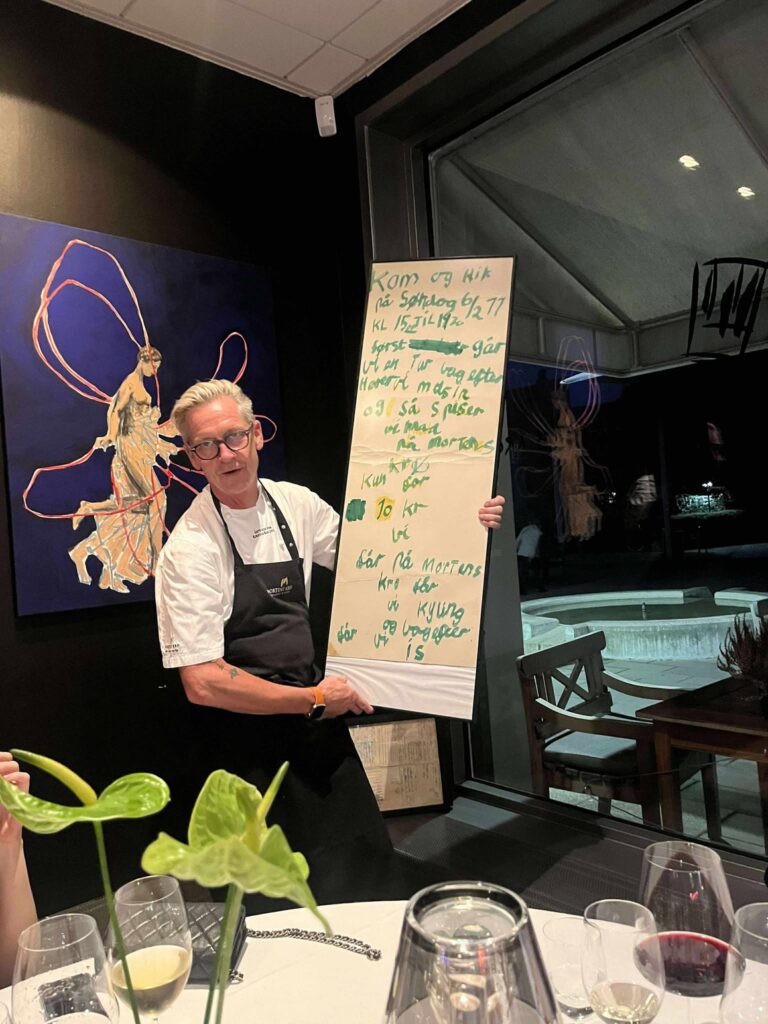 Kom og Hik
på Søndag 6/2 77
KL 15 TIL 19
først går
vi en Tur bag efter
Hører vi
og Så Spiser
vi Mad
på Mortens
Kro
Kun for
10 kr
vi
får på Mortens
Kro får
vi Kylling
får og bag efter
vi is